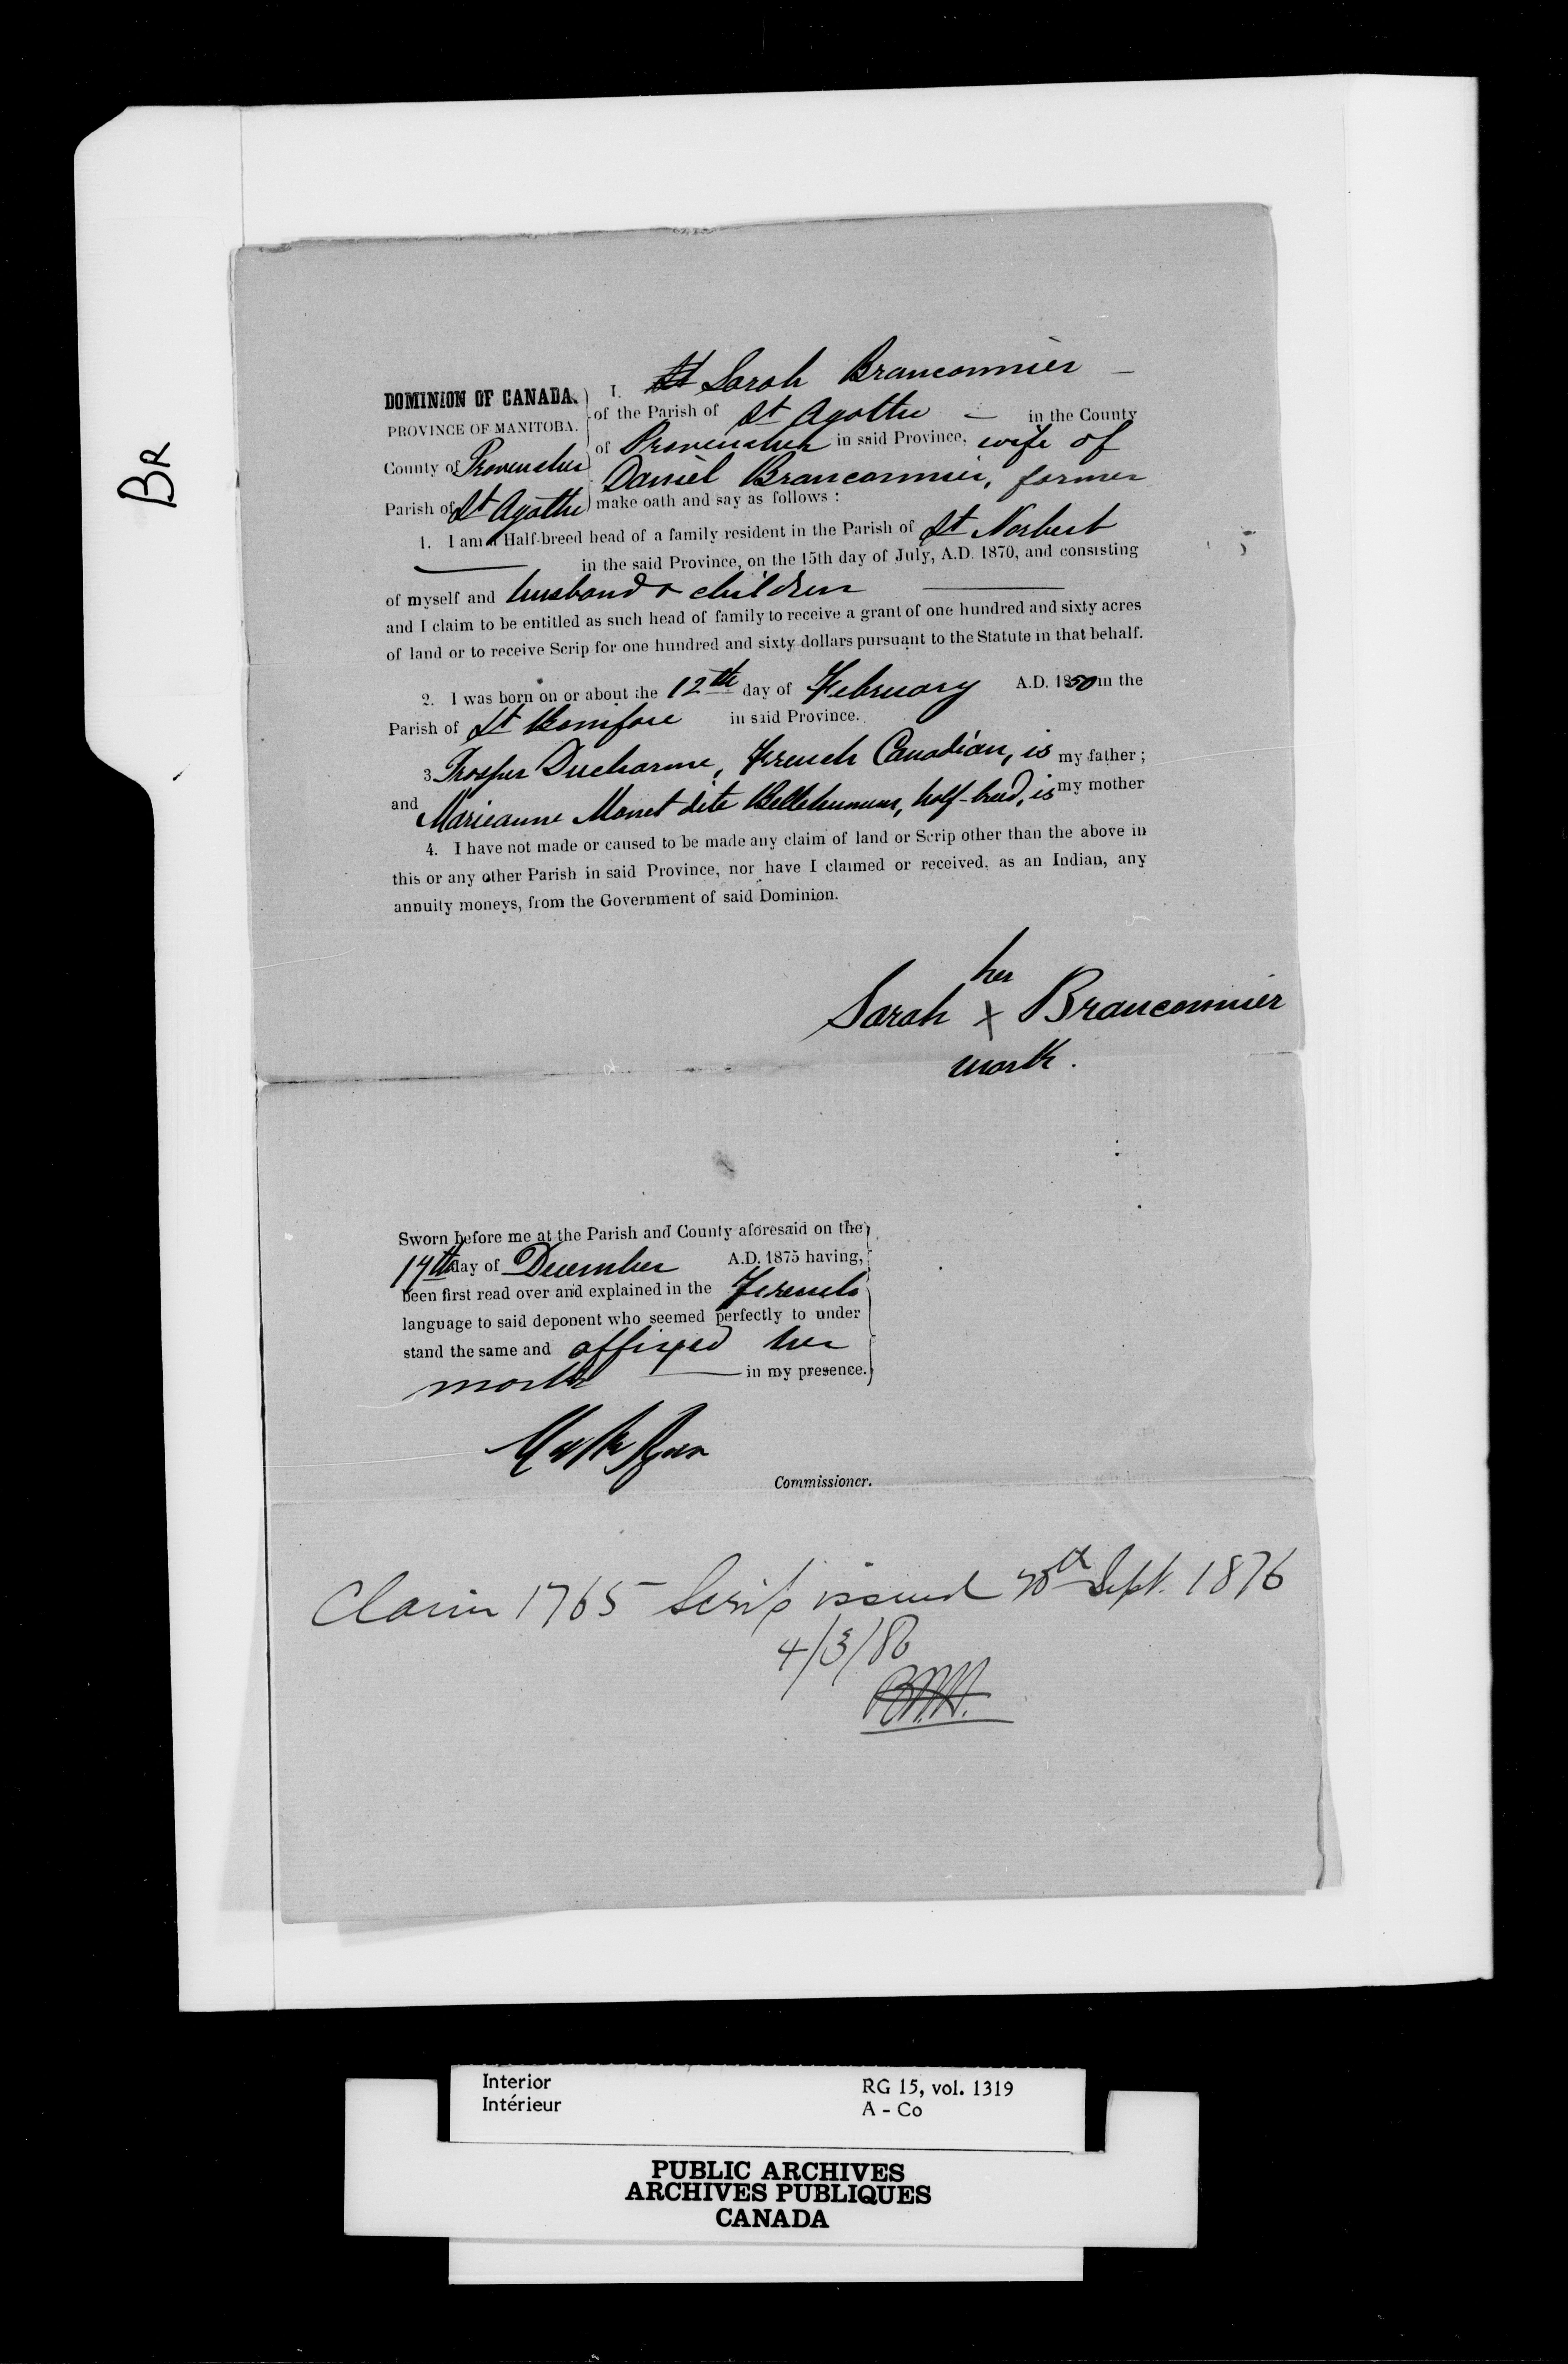 BR
DOMINION OF CANADA.
PROVINCE OF MANITOBA.
County of Provencher
Parish of St Agathe
I. Sarah Branconnier
of the Parish of St Agathe in the County
of Provencher in said Province, wife of
Daniel Branconnier, farmer
make oath and say as follows :
1. I am a Half-breed head of a family resident in the Parish of St Norbert
in the said Province, on the 15th day of July, A.D. 1870, and consisting
of myself and husband & children
and I claim to be entitled as such head of family to receive a grant of one hundred and sixty acres
of land or to receive Scrip for one hundred and sixty dollars pursuant to the Statute in that behalf.
2. I was born on or about the 12th day of February A.D. 1850 in the
Parish of St Boniface in said Province.
3. Prosper Ducharme, French Canadian, is my father ;
and Marieanne Monet dite Bellehumeur, half-breed, is my mother
4. I have not made or caused to be made any claim of land or Scrip other than the above in
this or any other Parish in said Province, nor have I claimed or received, as an Indian, any
annuity moneys, from the Government of said Dominion.
her
Sarah X Branconnier
mark.
Sworn before me at the Parish and County aforesaid on the
14th day of December A.D. 1875 having,
been first read over and explained in the French
language to said deponent who seemed perfectly to under
stand the same and affixed her
mark in my presence.
Commissioner.
Claim 1765 Scrip issued 20th Sept. 1876
4/3/80
Interior
Intérieur
RG 15, vol. 1319
A - Co
PUBLIC ARCHIVES
ARCHIVES PUBLIQUES
CANADA